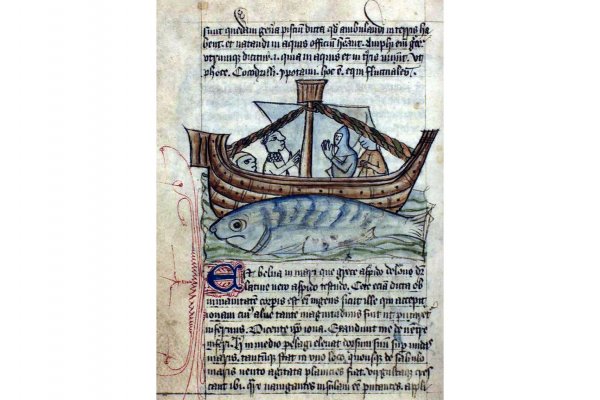 sunt quedam gen̄a pisciū dicta qd̄ ambulandi in terris ha
bent. et natandi in aquis officiū Amphi em̄
utrumque dicit̄ .i. quia in aquis et in t̄ris vivūt. vt
phoce. Cocodrilli. ypotami. hoc ē. equi fluctuales.
Est belua in mari que grece aspido delone dr̄
latine vero aspido testudo. Cete eciā dicta ob
inmanitatem corp̄is est em̄ ingens sicut ille qui excepit
ionam cuiꝰ alvꝰ tante magnitudinis fuit ut putaret̄
infernus. Dicente ip̄o iona. Exaudivit me de ventre
inferi. in medio pelagi elevat dorsum suū sup̄ undas
maris. tantūque stat in uno loco. quousque de sabulo
maris vento agitata planicies fiat. virgultaque cres
cant ibi. navigantes insulam eē putantes. appli